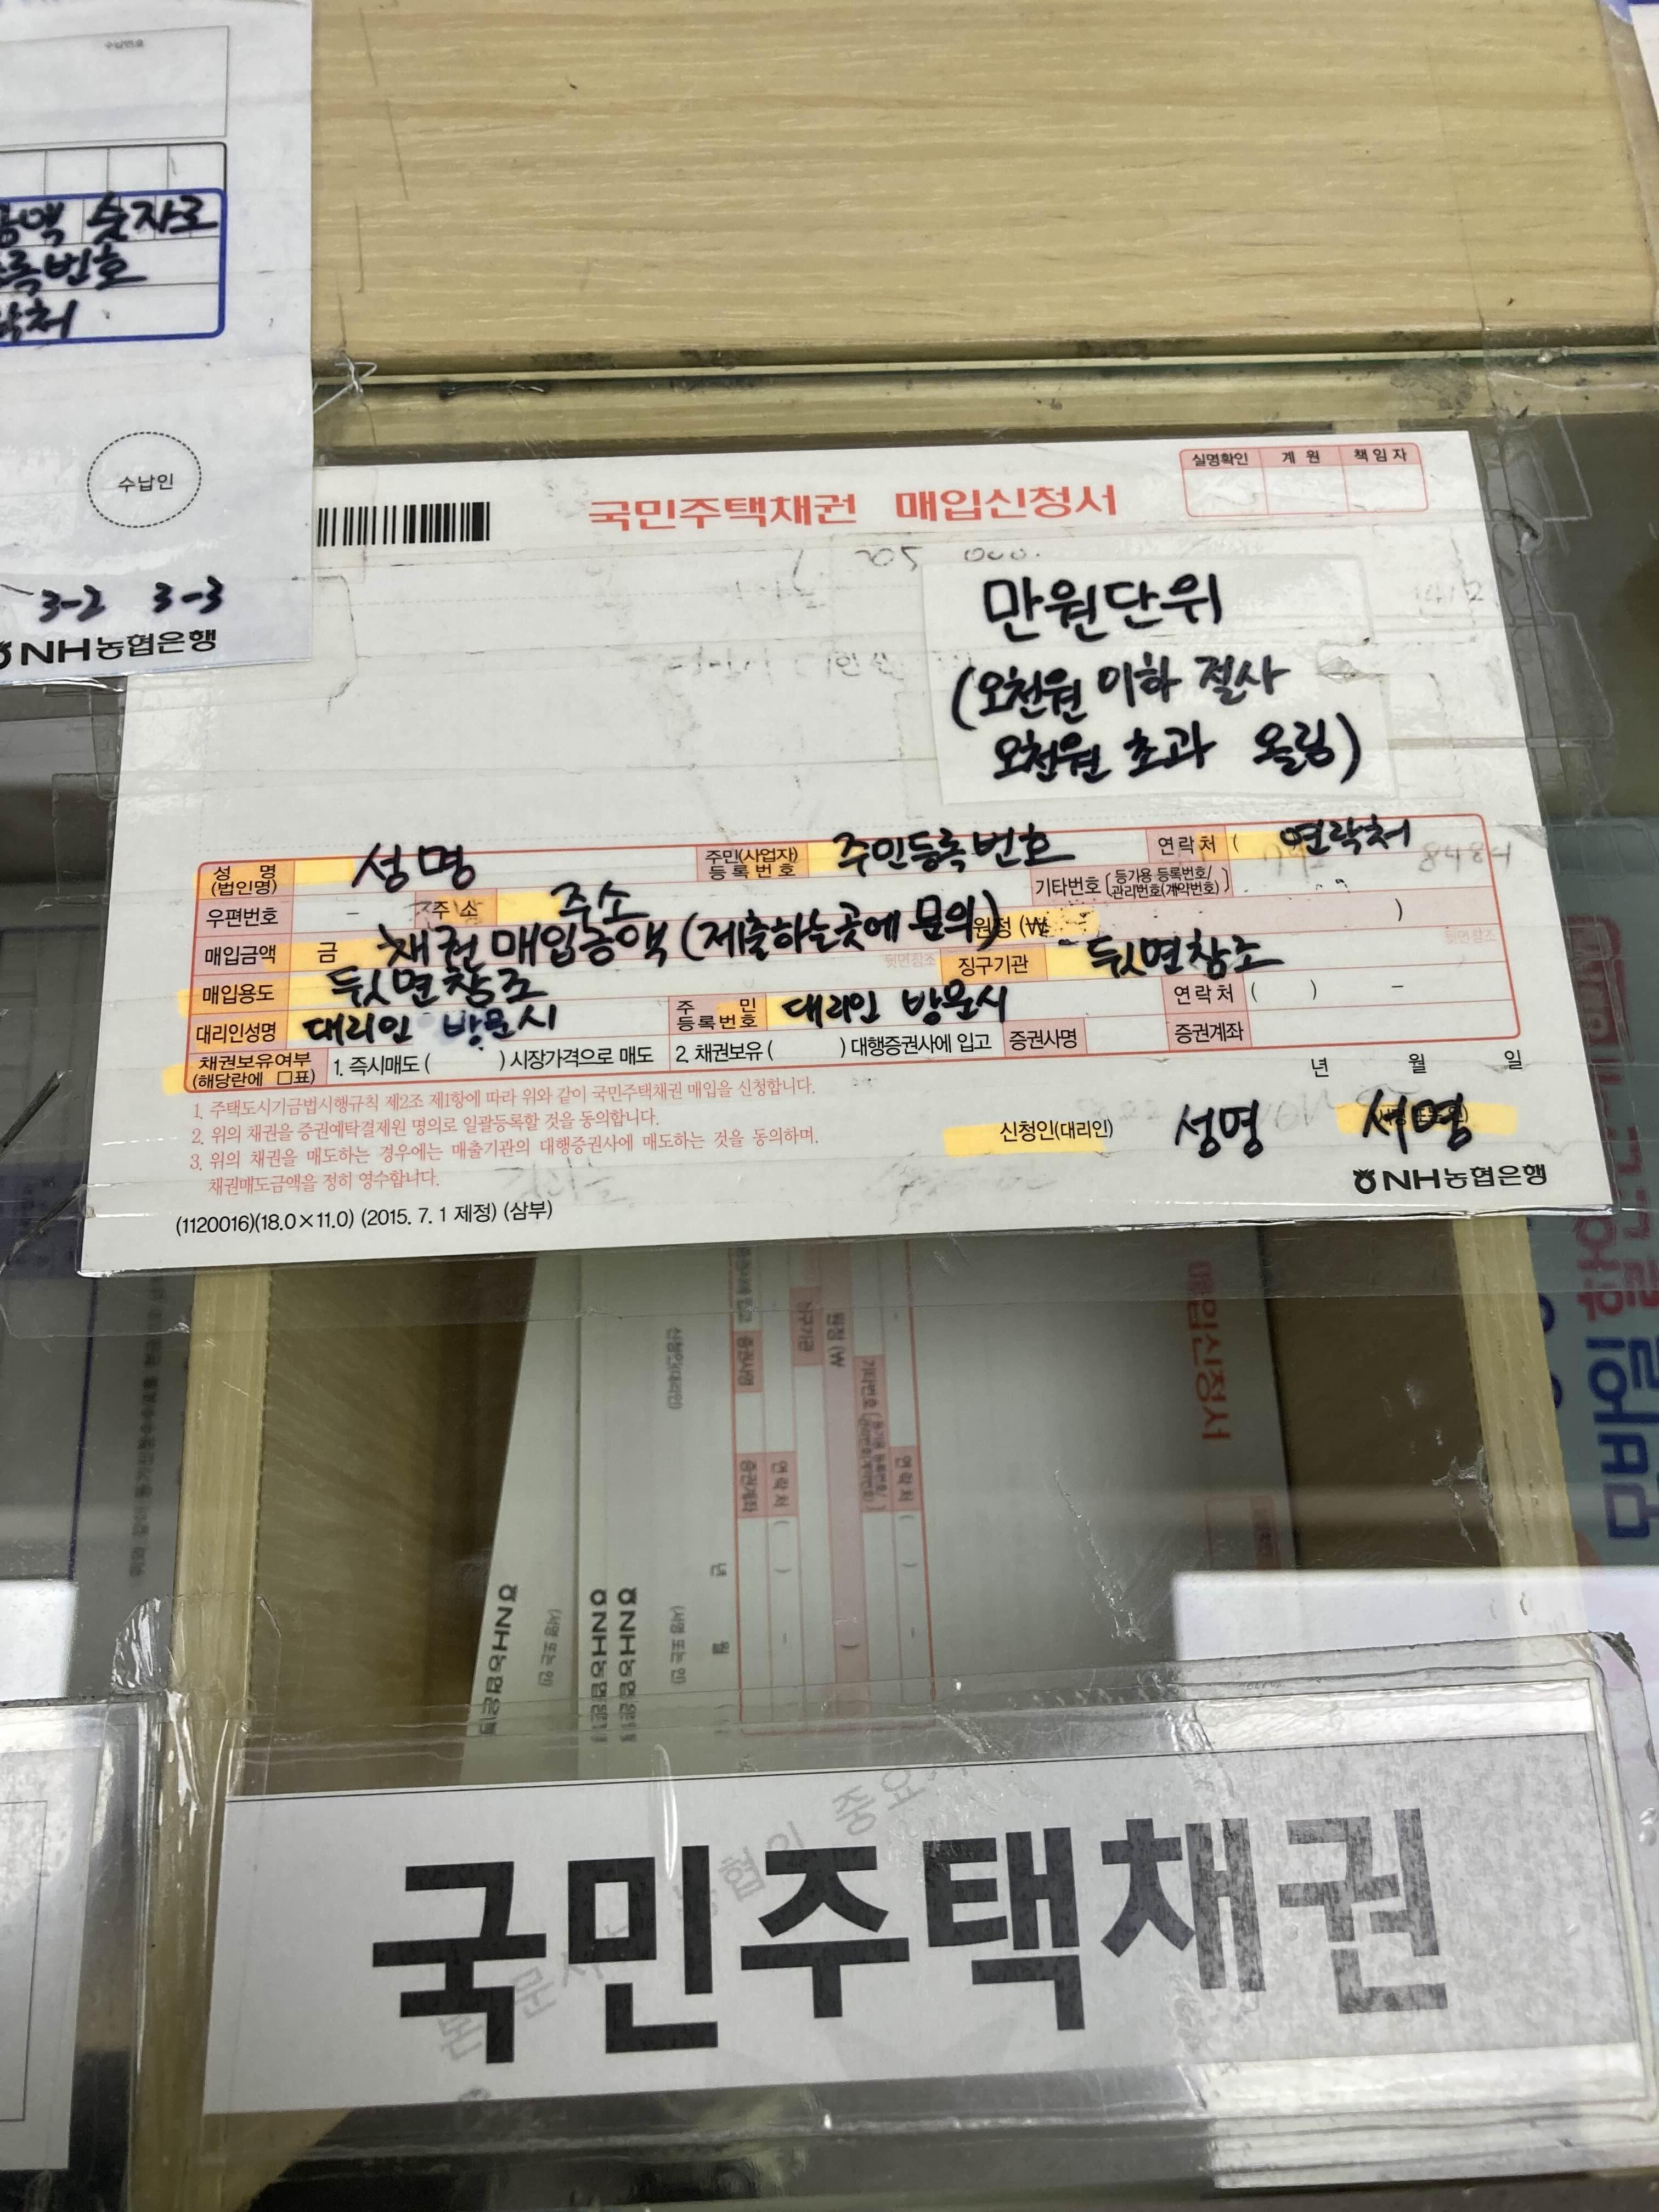 수납번호
금액 숫자로
등록번호
락처
수납인
3-2 3-3
NH농협은행
국민주택채권 매입신청서
실명확인 계 원 책임자
만원단위
(오천원 이하 절사
오천원 초과 올림)
성 명
(법인명)
성명
주민(사업자)
등 록 번 호
주민등록번호
연락처 (
연락처
우편번호 -
주 소
주소
기타번호 [등기용 등록번호/
관리번호(계약번호)] )
매입금액 금
채권매입금액 (제출하는곳에 문의)
원정 (₩
매입용도
뒷면참조
뒷면참조
징구기관
뒷면참조
뒷면참조
대리인성명
대리인 방문시
주 민
등록번호
대리인 방문시
연락처 ( ) -
채권보유여부
(해당란에 □표)
1. 즉시매도 ( ) 시장가격으로 매도
2. 채권보유 ( ) 대행증권사에 입고
증권사명
증권계좌
년 월 일
1. 주택도시기금법시행규칙 제2조 제1항에 따라 위와 같이 국민주택채권 매입을 신청합니다.
2. 위의 채권을 증권예탁결제원 명의로 일괄등록할 것을 동의합니다.
3. 위의 채권을 매도하는 경우에는 매출기관의 대행증권사에 매도하는 것을 동의하며,
채권매도금액을 정히 영수합니다.
신청인(대리인)
성명 서명
NH농협은행
(1120016)(18.0×11.0) (2015. 7. 1 제정) (삼부)
매입신청서
원정 (₩
징구기관
증권사명
신청인(대리인)
기타번호
연락처 ( ) -
연락처 ( ) -
증권계좌
년 월
(서명 또는 인)
(서명 또는 인)
NH농협은행
NH농협은행
NH농협은행
모바일
국민주택채권